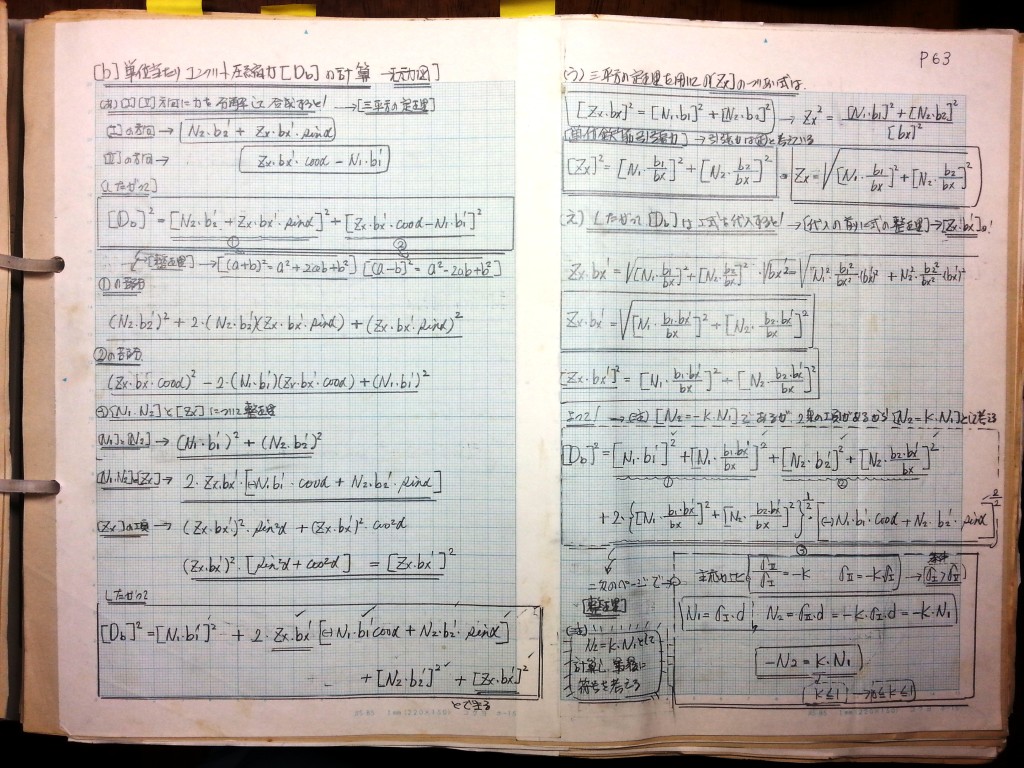 [b] 単位当たりコンクリート圧縮力 [Db] の計算
→ [三平方の定理]
[Ⅰ]の方向 → [N₂·b₂' + Zx·bx'·sinα]
[Ⅱ]の方向 → [Zx·bx'·cosα − N₁·b₁']
[したがって]
[Db]² = [N₂·b₂' + Zx·bx'·sinα]² + [Zx·bx'·cosα − N₁·b₁']²
① ②
[整理] → [(a+b)² = a² + 2ab + b²] [(a−b)² = a² − 2ab + b²]
①の部分
(N₂·b₂')² + 2·(N₂·b₂')(Zx·bx'·sinα) + (Zx·bx'·sinα)²
②の部分
(Zx·bx'·cosα)² − 2·(N₁·b₁')(Zx·bx'·cosα) + (N₁·b₁')²
[N₁·N₂]と[Zx]について整理
[N₁]と[N₂] → (N₁·b₁')² + (N₂·b₂')²
[N₁·N₂]と[Zx] → 2·Zx·bx'·[(−)N₁·b₁'·cosα + N₂·b₂'·sinα]
[Zx]の項 → (Zx·bx')²·sin²α + (Zx·bx')²·cos²α
(Zx·bx')²·[sin²α + cos²α] = [Zx·bx']²
したがって
[Db]² = [N₁·b₁']² + 2·Zx·bx'·[(−)N₁·b₁'cosα + N₂·b₂'·sinα]
+ [N₂·b₂']² + [Zx·bx']²
とできる
P63
(う) 三平方の定理を用いて[Zx]のつりあい式は、
[Zx·bx]² = [N₁·b₁]² + [N₂·b₂]² → Zx² = [N₁·b₁]² + [N₂·b₂]² / [bx]²
[Zx]² = [N₁·b₁/bx]² + [N₂·b₂/bx]² → Zx = √[N₁·b₁/bx]² + [N₂·b₂/bx]²
(え) したがって [Db]は上式を代入すると! → [代入の前に式の整理] → [Zx·bx']は!
Zx·bx' = √[N₁·b₁/bx]² + [N₂·b₂/bx]² · √bx'² = √N₁²·b₁²/bx²·(bx')² + N₂²·b₂²/bx²·(bx')²
Zx·bx' = √[N₁·b₁·bx'/bx]² + [N₂·b₂·bx'/bx]²
[Zx·bx']² = [N₁·b₁·bx'/bx]² + [N₂·b₂·bx'/bx]²
よって! → (注) [N₂ = −K·N₁]であるが、2乗の項があるから [N₂ = K·N₁]として考える
[Db]² = [N₁·b₁']² + [N₁·b₁·bx'/bx]² + [N₂·b₂']² + [N₂·b₂·bx'/bx]²
① ②
+ 2·{[N₁·b₁·bx'/bx]² + [N₂·b₂·bx'/bx]²}^½ · [(−)N₁·b₁'·cosα + N₂·b₂'·sinα]^2/2
③
二次のページで
[整理]
主応力比 σⅡ/σⅠ = −K σⅡ = −K·σⅠ → [σⅠ > σⅡ]
N₁ = σⅠ·d N₂ = σⅡ·d = −K·σⅠ·d = −K·N₁
−N₂ = K·N₁
(注)
N₂ = K·N₁として
計算し、最後に
符号を考える
[K≦1] → 0≦K≦1